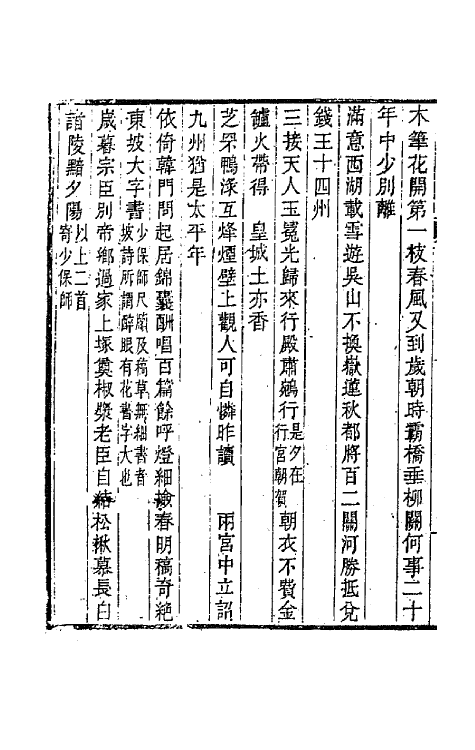 木筆花開第一枝春風又到歲朝時霸橋垂柳關何事二十
年中少別離
滿意西湖載雪遊吳山不換嶽蓮秋都將百二關河勝抵兌
錢王十四州
三接天人玉冕光歸來行殿肅鵷行是夕在行宮朝賀朝衣不費金
鑪火帶得　皇城土亦香
芝罘鴨渌互烽煙壁上觀人可自憐昨讀　兩宮中立詔
九州猶是太平年
依倚韓門問起居錦囊酬唱百篇餘呼燈細檢春明稿奇絶
東坡大字書少保師尺牘及稿草無細書者坡詩所謂醉眼有花書字大也
歲暮宗臣別帝鄉過家上塚奠椒漿老臣自結松楸慕長白
諸陵黯夕陽以上二首寄少保師